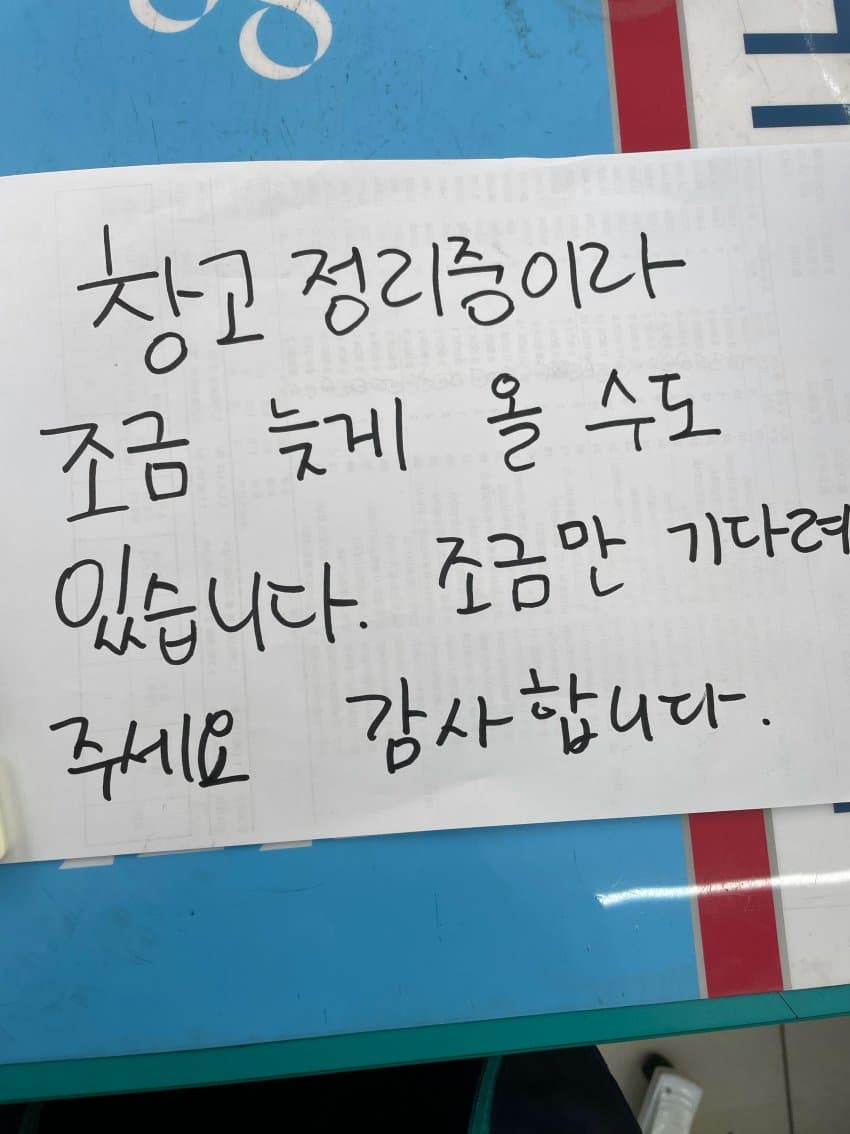 창고 정리중이라
조금 늦게 올 수도
있습니다. 조금만 기다려
주세요 감사합니다.